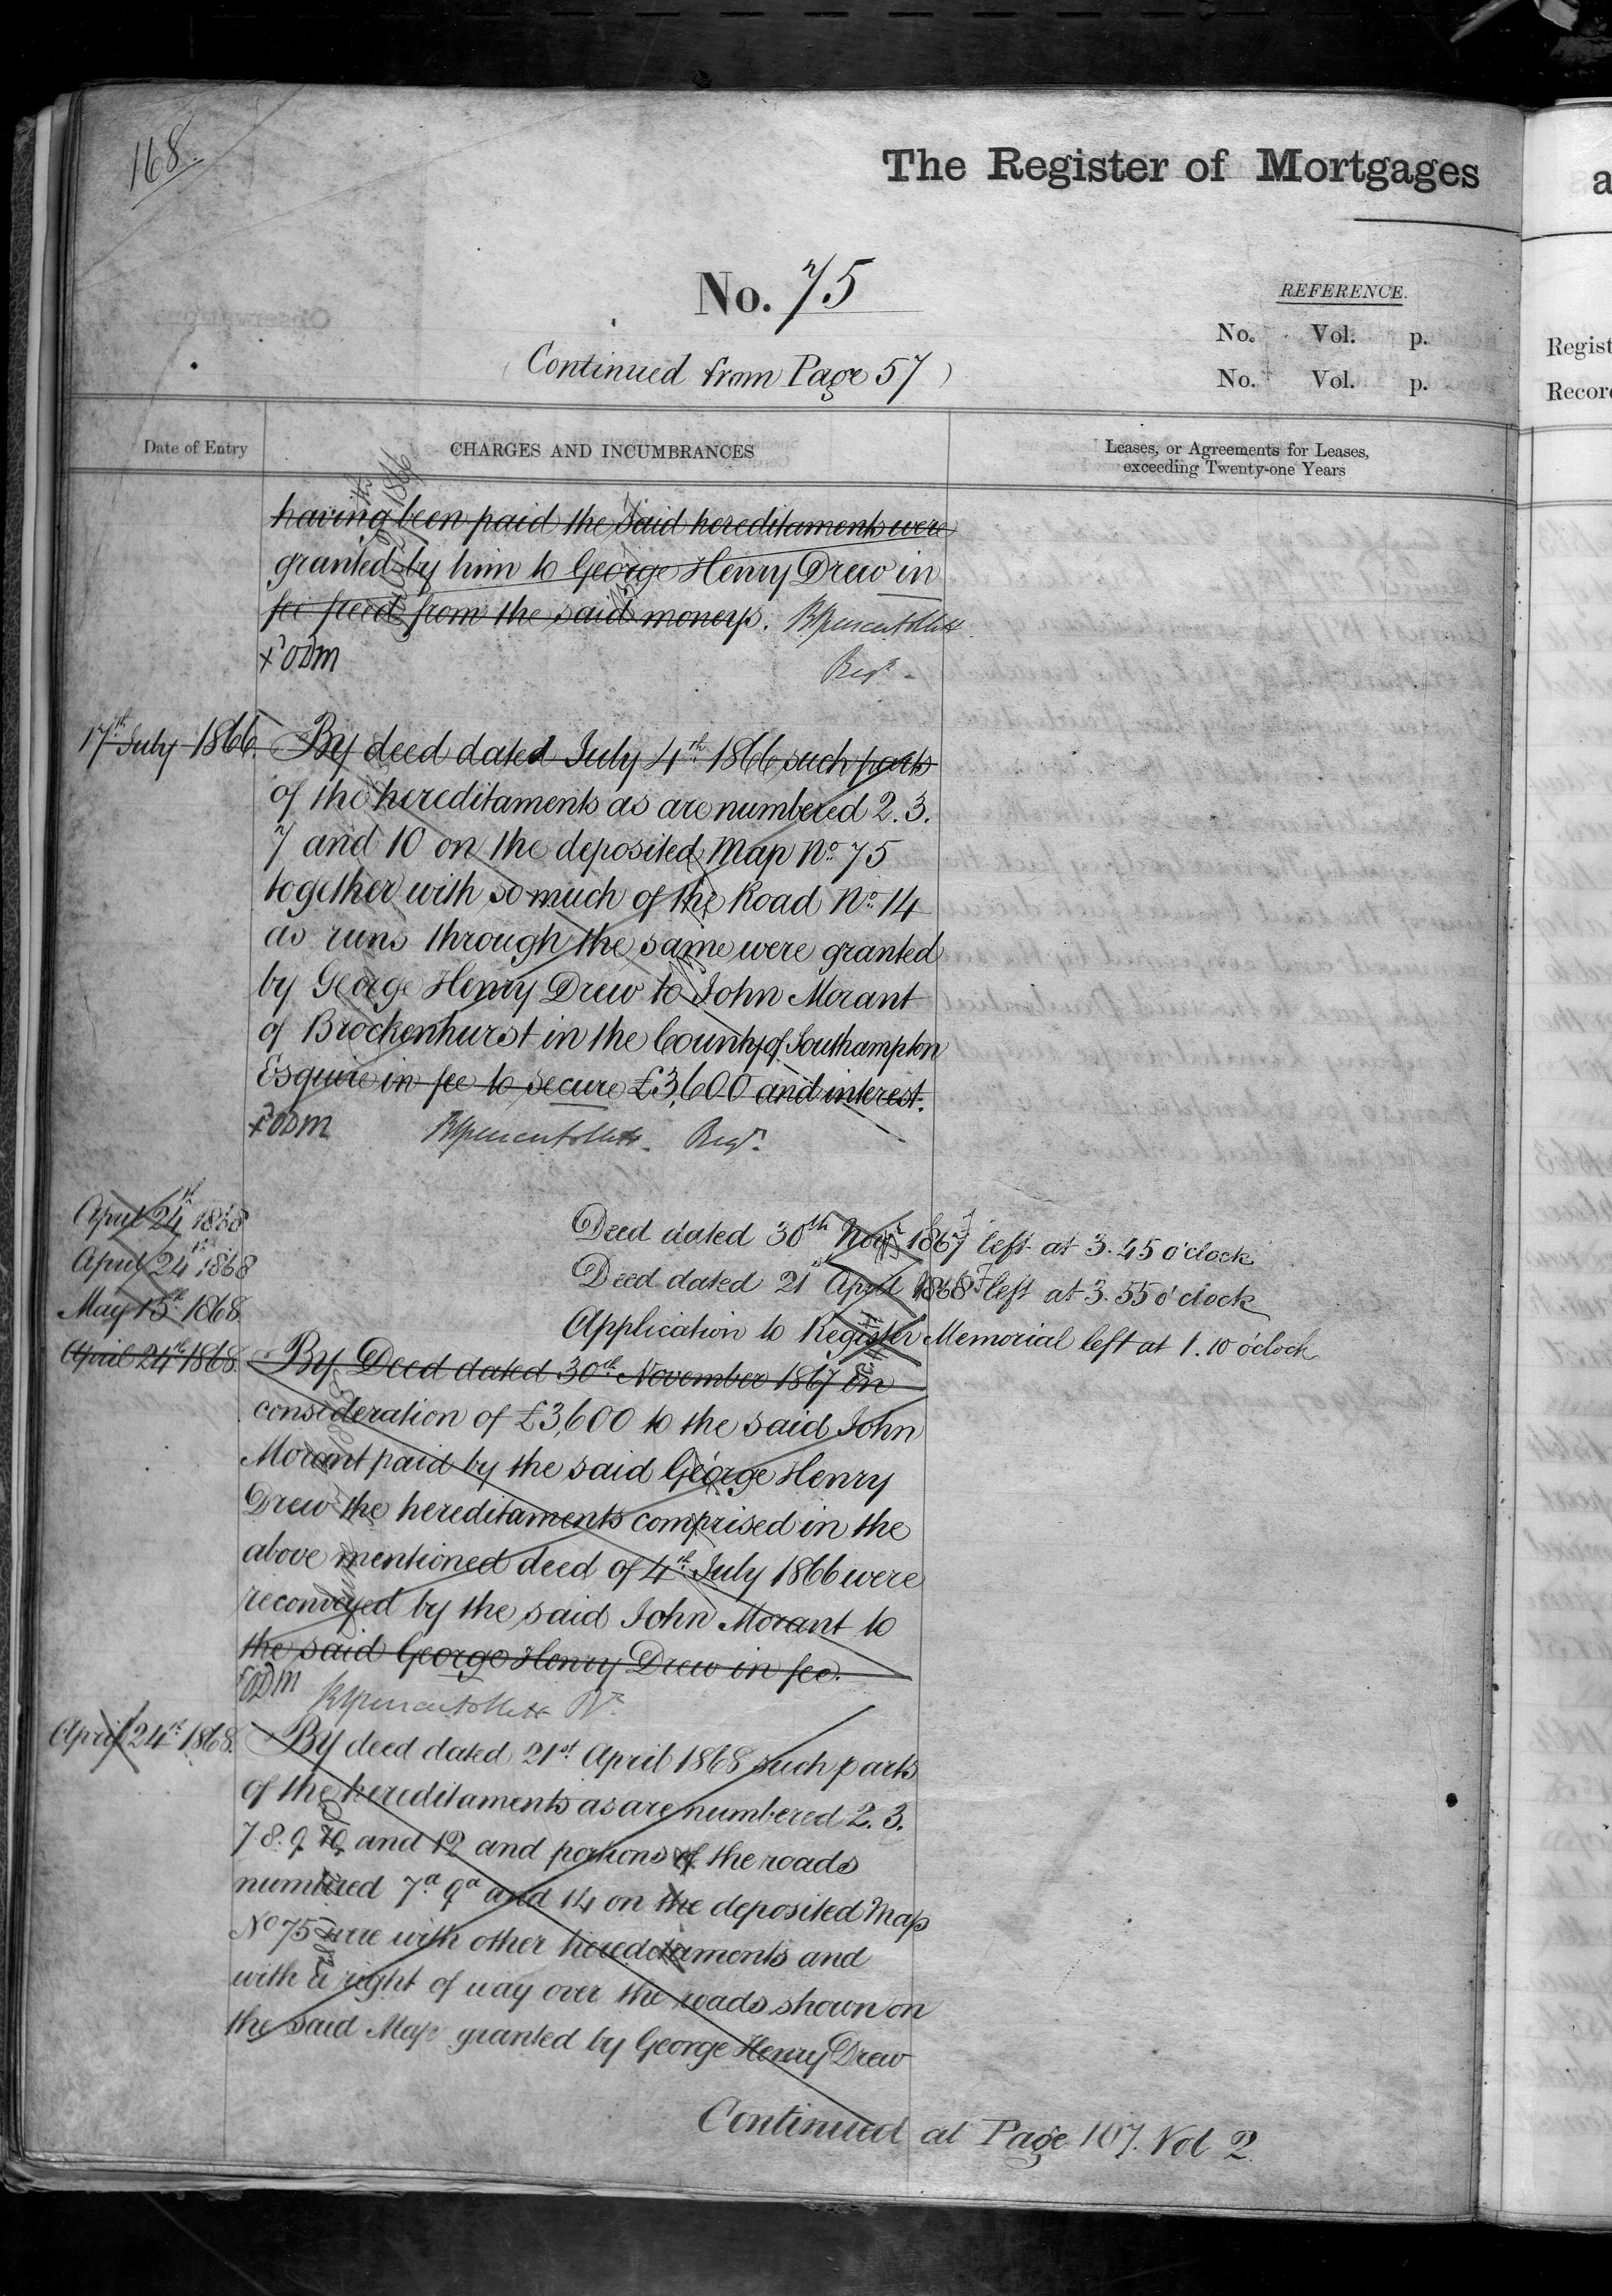 168.
The Register of Mortgages
No. 75
REFERENCE.
No. Vol. p.
(Continued from Page 57)
No. Vol. p.
Date of Entry
CHARGES AND INCUMBRANCES
Leases, or Agreements for Leases,
exceeding Twenty-one Years
having been paid the said hereditaments were
granted by him to George Henry Drew in
fee freed from the said moneys.
Regr.
17th July 1866. By deed dated July 4th 1866 such parts
of the hereditaments as are numbered 2. 3.
7 and 10 on the deposited Map No. 75
together with so much of the Road No. 14
as runs through the same were granted
by George Henry Drew to John Morant
of Brockenhurst in the County of Southampton
Esquire in fee to secure £3,600 and interest.
Regr.
April 24th 1868 Deed dated 30th Novr 1867 left at 3.45 o'clock
April 24th 1868 Deed dated 21st April 1868 left at 3.55 o'clock
May 15th 1868 Application to Register Memorial left at 1.10 o'clock
April 24th 1868. By Deed dated 30th November 1867 in
consideration of £3,600 to the said John
Morant paid by the said George Henry
Drew the hereditaments comprised in the
above mentioned deed of 4th July 1866 were
reconveyed by the said John Morant to
the said George Henry Drew in fee.
April 24th 1868. By deed dated 21st April 1868 such parts
of the hereditaments as are numbered 2. 3.
7. 8. 9. 10. and 12 and portions of the roads
numbered 7a 9a and 14 on the deposited Map
No 75 were with other hereditaments and
with a right of way over the roads shown on
the said Map granted by George Henry Drew
Continued at Page 107. Vol 2.
a
Regist
Record